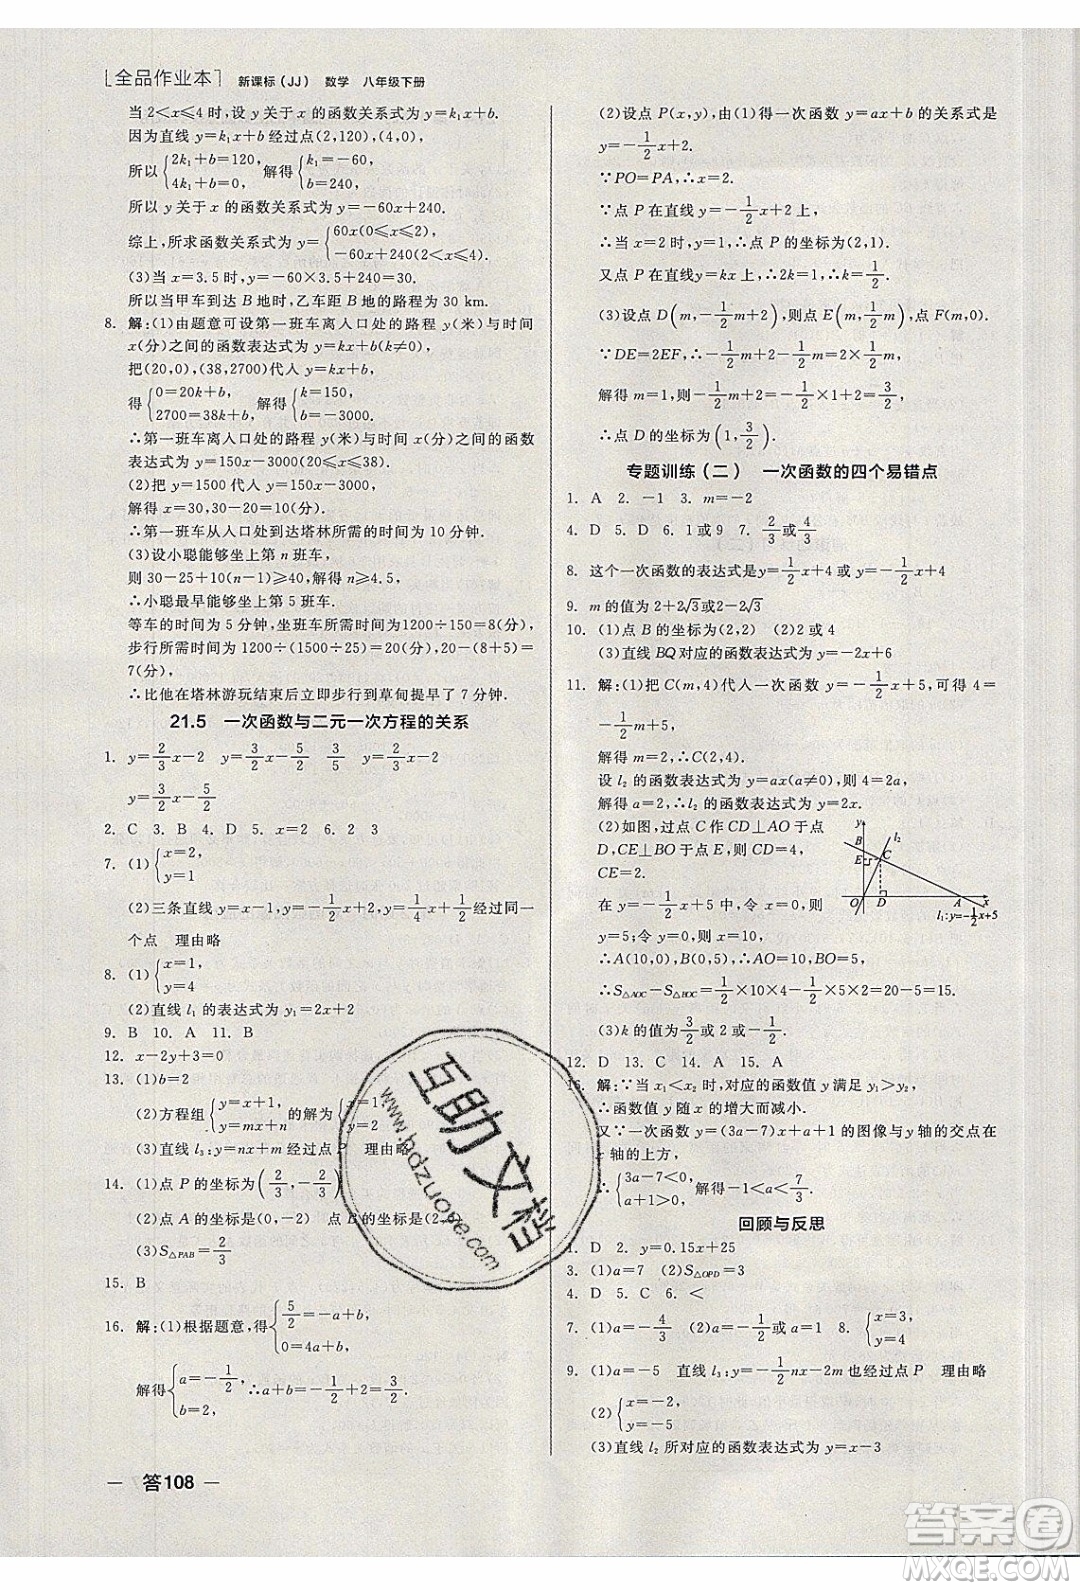 [全品作业本] 新课标(JJ) 数学 八年级下册
当 2<x≤4 时,设 y 关于 x 的函数关系式为 y=k₁x+b.
因为直线 y=k₁x+b 经过点(2,120),(4,0),
所以{2k₁+b=120, 4k₁+b=0, 解得{k₁=-60, b=240.
所以 y 关于 x 的函数关系式为 y=-60x+240.
综上,所求函数关系式为 y={60x(0≤x≤2), -60x+240(2<x≤4).
(3)当 x=3.5 时,y=-60×3.5+240=30.
所以当甲车到达 B 地时,乙车距 B 地的路程为 30 km.
8. 解:(1)由题意可设第一班车离入口处的路程 y(米)与时间
x(分)之间的函数表达式为 y=kx+b(k≠0),
把(20,0),(38,2700)代入 y=kx+b,
得{0=20k+b, 2700=38k+b, 解得{k=150, b=-3000.
∴第一班车离入口处的路程 y(米)与时间 x(分)之间的函数
表达式为 y=150x-3000(20≤x≤38).
(2)把 y=1500 代入 y=150x-3000,
解得 x=30,30-20=10(分),
∴第一班车从入口处到达塔林所需的时间为 10 分钟.
(3)设小聪能够坐上第 n 班车,
则 30-25+10(n-1)≥40,解得 n≥4.5,
∴小聪最早能够坐上第 5 班车.
等车的时间为 5 分钟,坐班车所需时间为1200÷150=8(分),
步行所需时间为 1200÷(1500÷25)=20(分),20-(8+5)=
7(分),
∴比他在塔林游玩结束后立即步行到草甸提早了 7 分钟.
21.5 一次函数与二元一次方程的关系
1. y=2/3x-2 y=3/2x-5/2 2/3 3/2 y=2/3x-2
y=3/2x-5/2
2. C 3. B 4. D 5. x=2 6. 2 3
7. (1){x=2, y=1
(2)三条直线 y=-1/2x+2,y=x-1,y=1/4x+1/2经过同一
个点 理由略
8. (1){x=1, y=4
(2)直线 l₁ 的表达式为 y₁=2x+2
9. B 10. A 11. B
12. x-2y+3=0
13. (1)b=2
(2)方程组{y=x+1, y=mx+n 的解为{x=1, y=2
(3)直线 l₃:y=nx+m 经过点 P 理由略
14. (1)点 P 的坐标为(2/3,-2/3)
(2)点 A 的坐标是(0,-2) 点 B 的坐标是(2,
(3)S△PAB=2/3
15. B
16. 解:(1)根据题意,得{5/2=-a+b, 0=4a+b,
解得{a=-1/2, b=2, ∴a+b=-1/2+2=3/2.
— 答108 —
(2)设点 P(x,y),由(1)得一次函数 y=ax+b 的关系式是
y=-1/2x+2.
∵PO=PA,∴x=2.
∵点 P 在直线 y=-1/2x+2 上,
∴当 x=2 时,y=1,∴点 P 的坐标为(2,1).
又点 P 在直线y=kx 上,∴2k=1,∴k=1/2.
(3)设点 D(m,-1/2m+2),则点 E(m,1/2m),点 F(m,0).
∵DE=2EF,∴-1/2m+2-1/2m=2×1/2m,
解得 m=1,∴-1/2m+2=-1/2×1+2=3/2,
∴点 D 的坐标为(1,3/2).
专题训练(二) 一次函数的四个易错点
1. A 2. -1 3. m=-2
4. D 5. D 6. 1或9 7. 2/3或4/3
8. 这个一次函数的表达式是y=1/2x+4 或y=-1/2x+4
9. m 的值为2+2√3或2-2√3
10. (1)点 B 的坐标为(2,2) (2)2 或 4
(3)直线 BQ 对应的函数表达式为 y=-2x+6
11. 解:(1)把 C(m,4)代入一次函数 y=-1/2x+5,可得 4=
-1/2m+5,
解得 m=2,∴C(2,4).
设 l₂ 的函数表达式为 y=ax(a≠0),则 4=2a,
解得 a=2,∴l₂ 的函数表达式为 y=2x.
(2)如图,过点 C 作 CD⊥AO于点
D,CE⊥BO于点E,则 CD=4,
CE=2.
在 y=-1/2x+5 中,令 x=0,则
y=5;令 y=0,则 x=10,
∴A(10,0),B(0,5),∴AO=10,BO=5,
∴S△AOC-S△BOC=1/2×10×4-1/2×5×2=20-5=15.
(3)k 的值为3/2或 2 或-1/2
y l₂ B E C O D A x l₁:y=-1/2x+5
12. D 13. C 14. A 15. A
16. 解:∵当 x₁<x₂ 时,对应的函数值 y 满足 y₁>y₂,
∴函数值 y 随 x 的增大而减小.
又∵一次函数 y=(3a-7)x+a+1 的图像与 y 轴的交点在
轴的上方,
∴{3a-7<0, a+1>0, 解得-1<a<7/3.
回顾与反思
1. D 2. y=0.15x+25
3. (1)a=5 (2)S△OPD=3
4. D 5. C 6. <
7. (1)a=-4/3 (2)a=-1/2或 a=1 8. {x=3, y=4
9. (1)a=-5 直线 l₃:y=-1/2nx-2m 也经过点 P 理由略
(2){x=-2, y=-5
(3)直线 l₂ 所对应的函数表达式为 y=x-3
互助文档
www.hdzuoye.com
答案圈
MXQE.COM